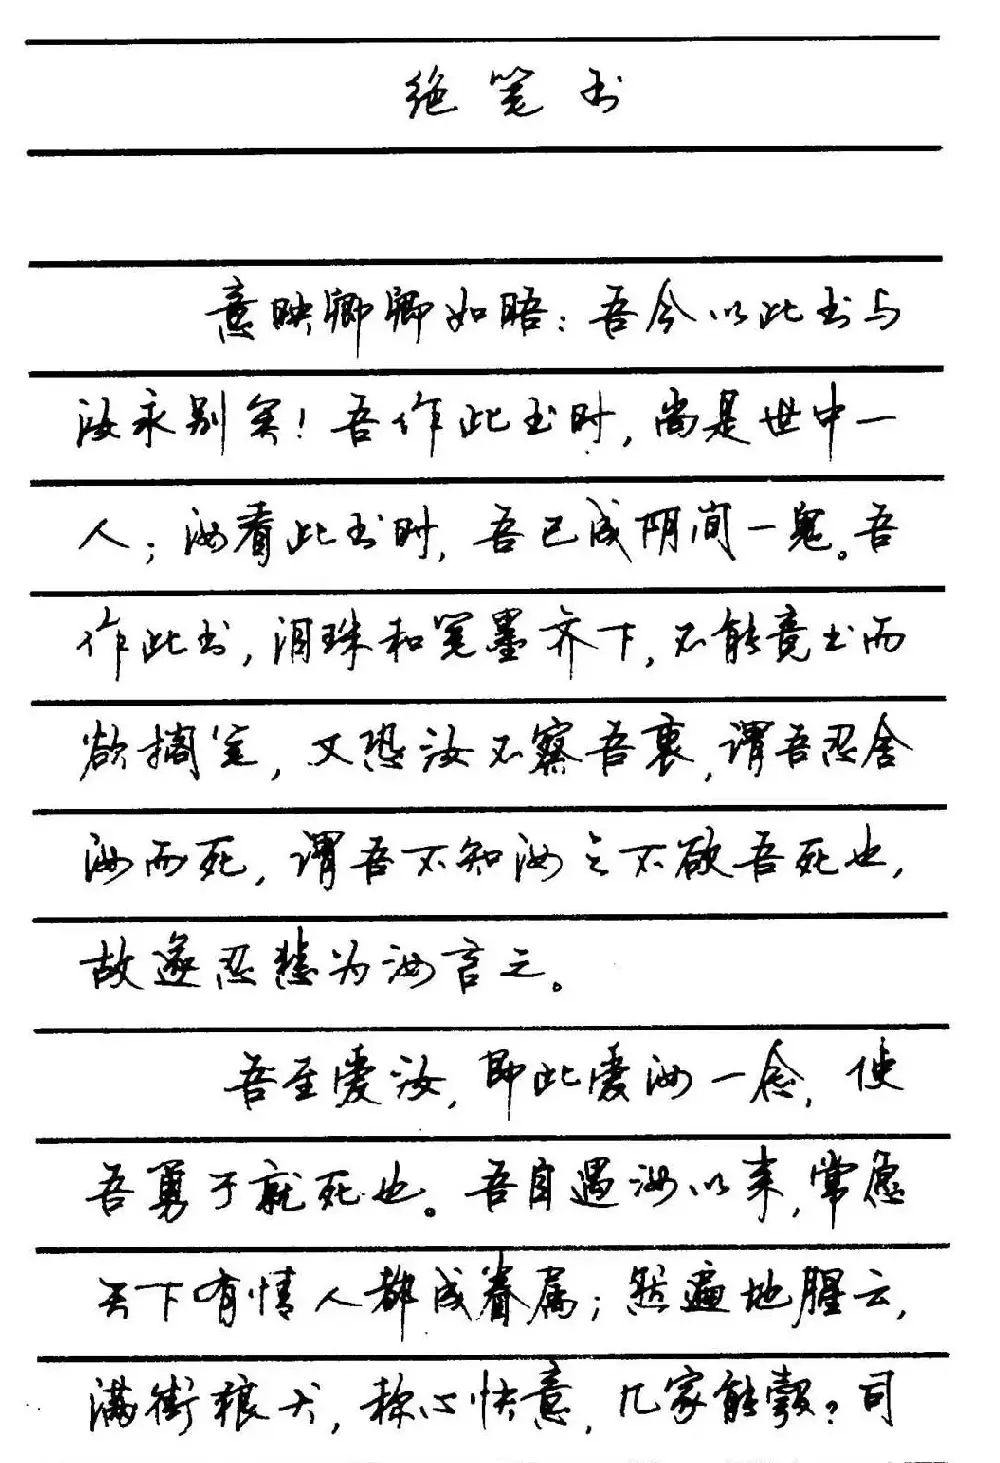 绝笔书
意映卿卿如晤：吾今以此书与
汝永别矣！吾作此书时，尚是世中一
人；汝看此书时，吾已成阴间一鬼。吾
作此书，泪珠和笔墨齐下，不能竟书而
欲搁笔，又恐汝不察吾衷，谓吾忍舍
汝而死，谓吾不知汝之不欲吾死也，
故遂忍悲为汝言之。
吾至爱汝，即此爱汝一念，使
吾勇于就死也。吾自遇汝以来，常愿
天下有情人都成眷属；然遍地腥云，
满街狼犬，称心快意，几家能彀？司